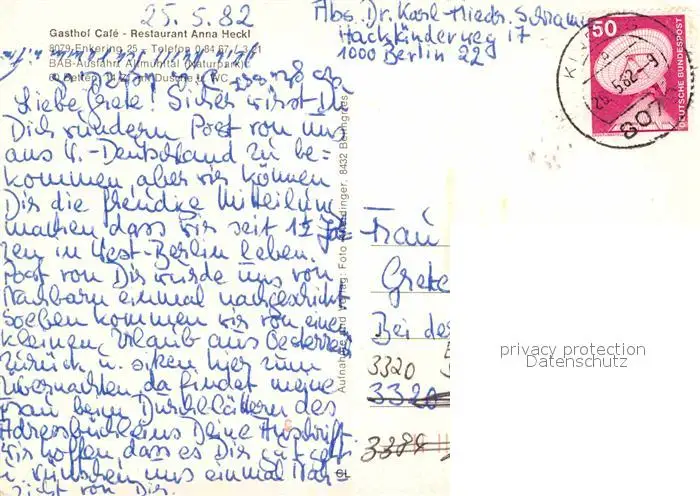 25.5.82
Gasthof Café - Restaurant Anna Heckl
8079 Enkering 25 - Telefon 0 84 67 /
BAB-Ausfahrt Altmühltal (Naturpark)
Betten Dusche u. WC
Liebe Grete! Sicher wirst Du
Dich wundern Post von uns
aus W.-Deutschland zu be-
kommen, aber wir können
Dir die freudige Mitteilung
machen dass wir seit 1½ Jah-
ren in West-Berlin leben.
Post von Dir wurde uns von
Nachbarn einmal nachgeschickt
Soeben kommen wir von einem
kleinen Urlaub aus Oesterreich
zurück u. sitzen hier zum
Übernachten, da findet meine
Frau beim Durchblättern des
Adressbüchleins Deine Anschrift.
Wir hoffen dass es Dir gut geht
u. wünschen uns einmal Nach-
richt von Dir.
Abs. Dr. Karl-Friedr. Schramm
Hackländerweg 17
1000 Berlin 22
50
DEUTSCHE BUNDESPOST
KI
26.5.82-9
807
Aufnahme und Verlag: Foto 8432 Beilngries
Frau
Grete
Bei der
3320
3320
3388
privacy protection
Datenschutz